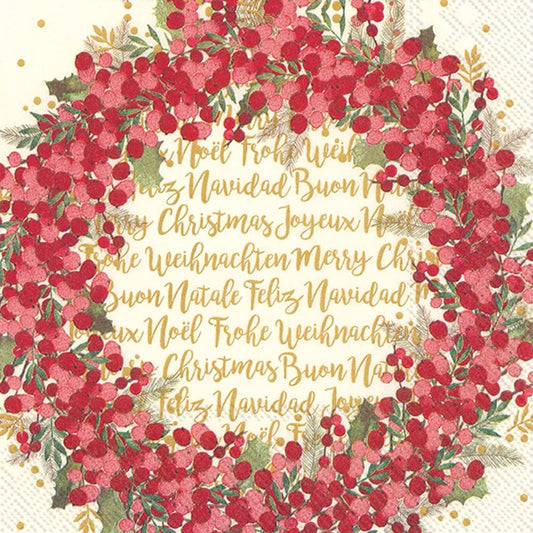 Merry
Noël Frohe Weih
Feliz Navidad Buon Nata
Merry Christmas Joyeux Noël
Frohe Weihnachten Merry Chris
Buon Natale Feliz Navidad M
Joyeux Noël Frohe Weihnachten
Christmas Buon Nata
Feliz Navidad Joyeu
Noël Fr